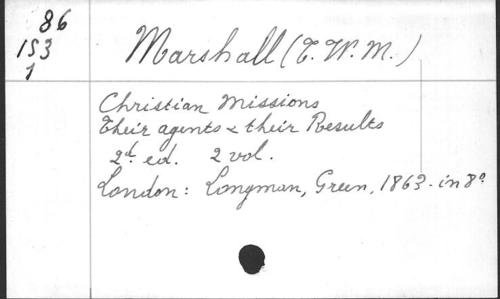 86
153
1
Marshall (T. W. M.)
Christian Missions
Their agents & their Results
2d. ed. 2 vol.
London: Longman, Green, 1863. in 8o